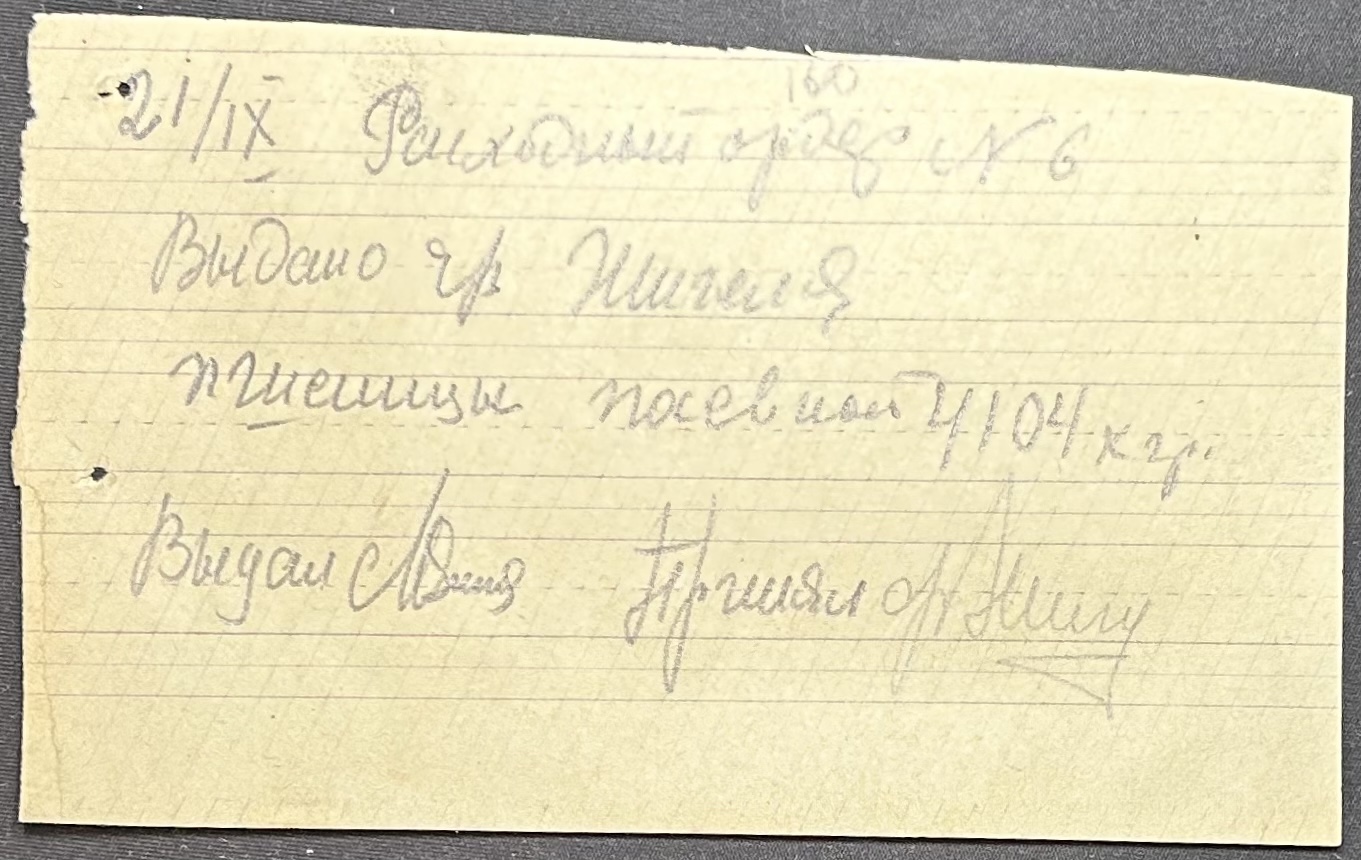 160
21/IX Расходный ордер № 6
Выдано гр
пшеницы посевной 4104 кгр.
Выдал Принял